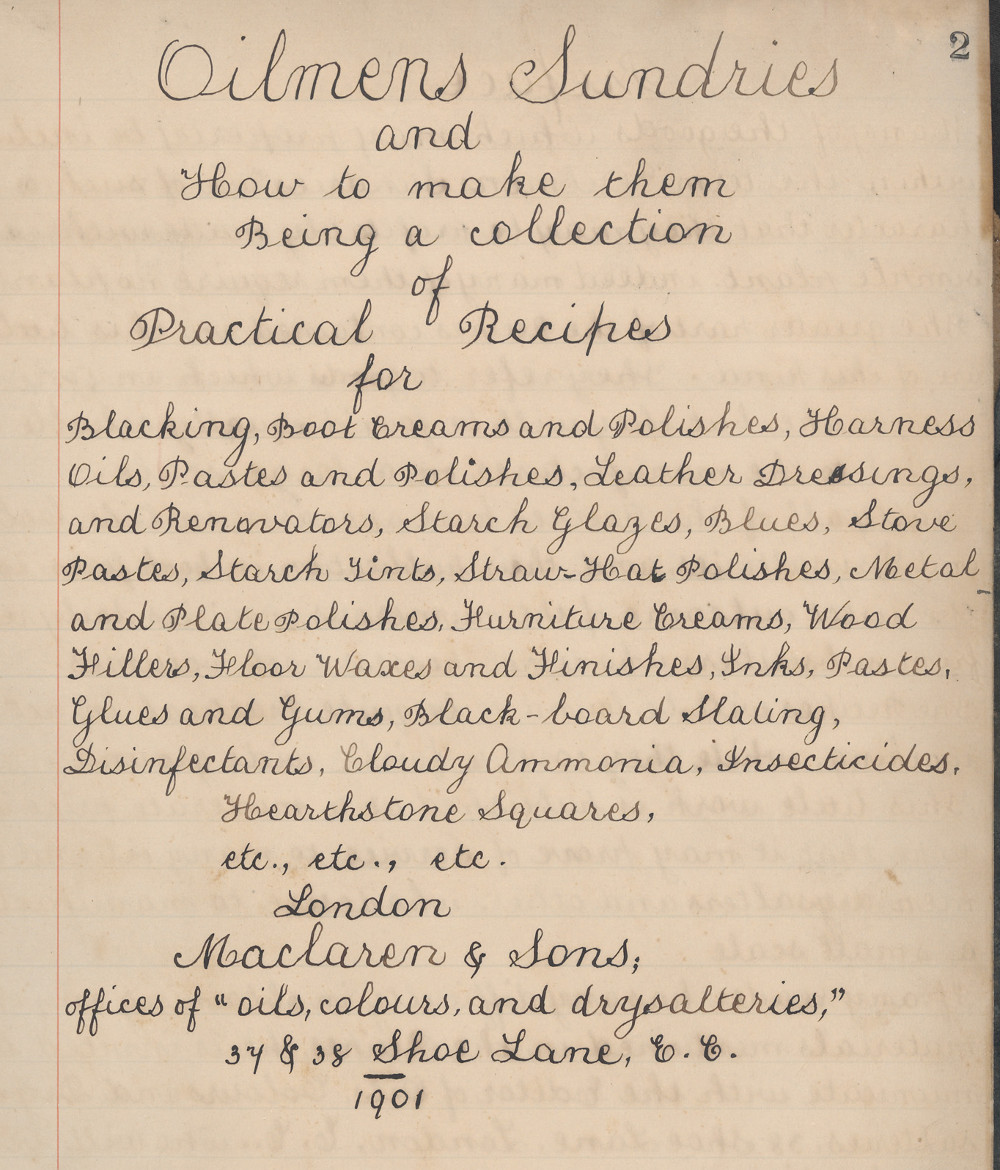 2
Oilmens Sundries
and
How to make them
Being a collection
of
Practical Recipes
for
Blacking, Boot Creams and Polishes, Harness
Oils, Pastes and Polishes, Leather Dressings,
and Renovators, Starch Glazes, Blues, Stove
Pastes, Starch Tints, Straw-Hat Polishes, Metal
and Plate Polishes, Furniture Creams, Wood
Fillers, Floor Waxes and Finishes, Inks, Pastes,
Glues and Gums, Black-board Slating,
Disinfectants, Cloudy Ammonia, Insecticides,
Hearthstone Squares,
etc., etc., etc.
London
Maclaren & Sons;
offices of "oils, colours, and drysalteries,"
37 & 38 Shoe Lane, E.C.
1901